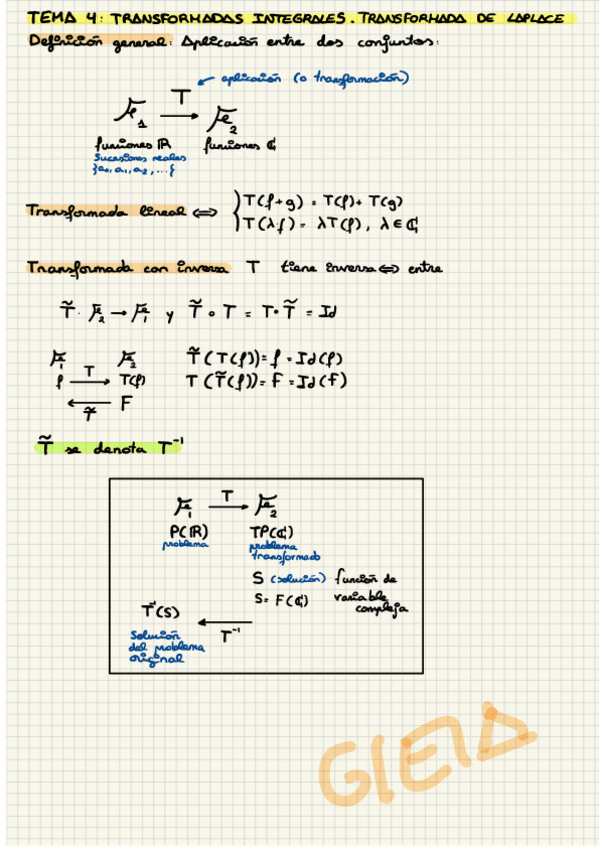 TEMA 4: TRANSFORMADAS INTEGRALES. TRANSFORMADA DE LAPLACE
Definición general: Aplicación entre dos conjuntos:
aplicación (o transformación)
T
ℱ₁ ⟶ ℱ₂
funciones ℝ funciones ℂ
Sucesiones reales
{a₀, a₁, a₂, ...}
Transformada lineal ⟺ { T(f+g) = T(f) + T(g)
T(λf) = λT(f), λ ∈ ℂ
Transformada con inversa T tiene inversa ⟺ entre
T̃ · ℱ₂ → ℱ₁ y T̃ ∘ T = T ∘ T̃ = Id
ℱ₁ ℱ₂ T̃(T(f)) = f = Id(f)
f T⟶ T(f) T(T̃(f)) = F = Id(F)
⟵ F
T̃
T̃ se denota T⁻¹
T
ℱ₁ ⟶ ℱ₂
P(ℝ) TP(ℂ)
problema problema
transformado
S (solución) función de
S = F(ℂ) variable
compleja
T⁻¹(S) ⟵
T⁻¹
Solución
del problema
original
GIETA